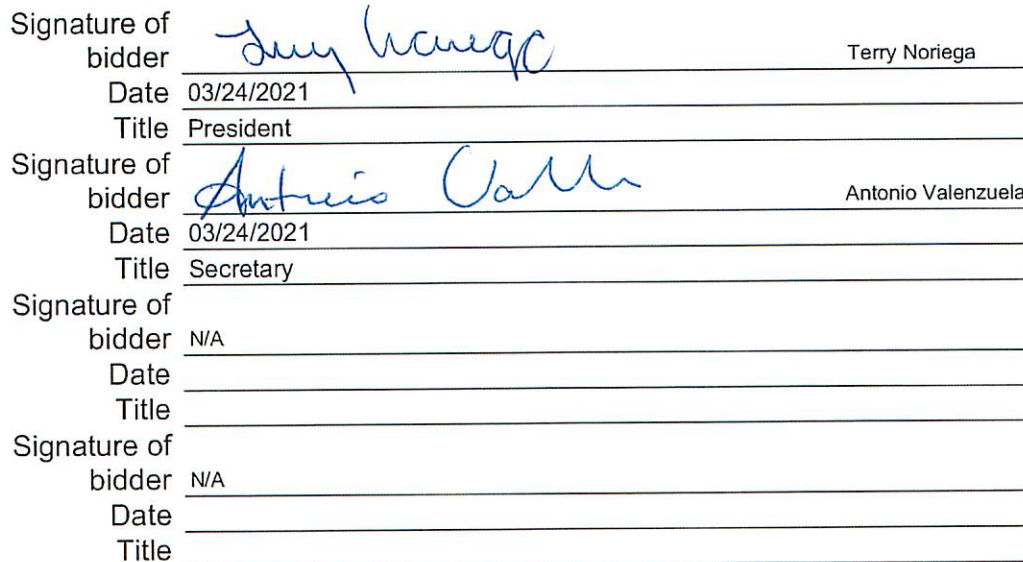 Signature of
bidder Terry Noriega Terry Noriega
Date 03/24/2021
Title President
Signature of
bidder Antonio Antonio Valenzuela
Date 03/24/2021
Title Secretary
Signature of
bidder N/A
Date
Title
Signature of
bidder N/A
Date
Title